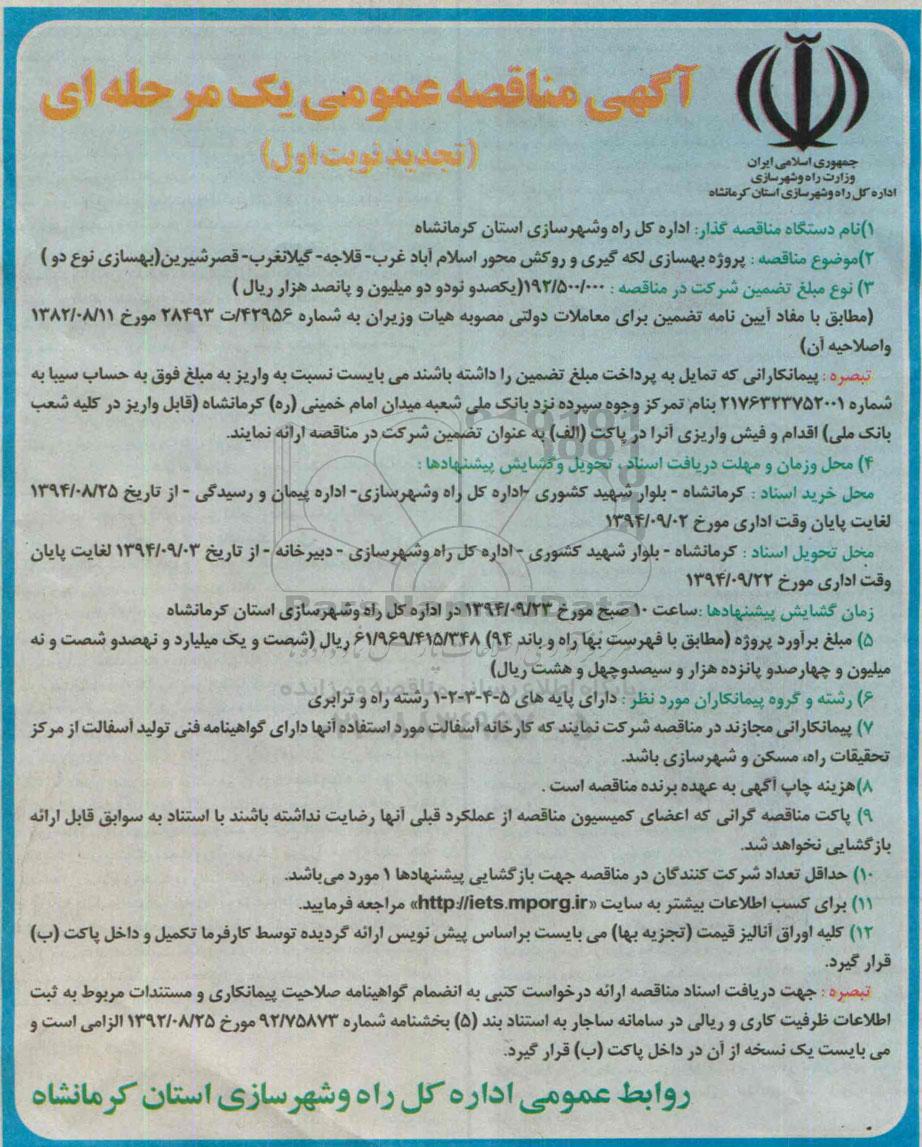 آگهی مناقصه عمومی یک مرحله ای
(تجدید نوبت اول)
جمهوری اسلامی ایران
وزارت راه وشهرسازی
اداره کل راه وشهرسازی استان کرمانشاه
۱)نام دستگاه مناقصه گذار: اداره کل راه وشهرسازی استان کرمانشاه
۲)موضوع مناقصه : پروژه بهسازی لکه گیری و روکش محور اسلام آباد غرب- قلاجه- گیلانغرب- قصرشیرین(بهسازی نوع دو )
۳) نوع مبلغ تضمین شرکت در مناقصه : ۱۹۲/۵۰۰/۰۰۰(یکصدو نودو دو میلیون و پانصد هزار ریال )
(مطابق با مفاد آیین نامه تضمین برای معاملات دولتی مصوبه هیات وزیران به شماره ۴۲۹۵۶/ت ۲۸۴۹۳ مورخ ۱۳۸۲/۰۸/۱۱
واصلاحیه آن)
تبصره : پیمانکارانی که تمایل به پرداخت مبلغ تضمین را داشته باشند می بایست نسبت به واریز به مبلغ فوق به حساب سیبا به
شماره ۲۱۷۶۳۲۳۷۵۲۰۰۱ بنام تمرکز وجوه سپرده نزد بانک ملی شعبه میدان امام خمینی (ره) کرمانشاه (قابل واریز در کلیه شعب
بانک ملی) اقدام و فیش واریزی آنرا در پاکت (الف) به عنوان تضمین شرکت در مناقصه ارائه نمایند.
۴) محل وزمان و مهلت دریافت اسناد، تحویل وگشایش پیشنهادها :
محل خرید اسناد : کرمانشاه - بلوار شهید کشوری -اداره کل راه وشهرسازی- اداره پیمان و رسیدگی - از تاریخ ۱۳۹۴/۰۸/۲۵
لغایت پایان وقت اداری مورخ ۱۳۹۴/۰۹/۰۲
محل تحویل اسناد : کرمانشاه - بلوار شهید کشوری - اداره کل راه وشهرسازی - دبیرخانه - از تاریخ ۱۳۹۴/۰۹/۰۳ لغایت پایان
وقت اداری مورخ ۱۳۹۴/۰۹/۲۲
زمان گشایش پیشنهادها :ساعت ۱۰ صبح مورخ ۱۳۹۴/۰۹/۲۳ در اداره کل راه وشهرسازی استان کرمانشاه
۵) مبلغ برآورد پروژه (مطابق با فهرست بها راه و باند ۹۴) ۶۱/۹۶۹/۴۱۵/۳۴۸ ریال (شصت و یک میلیارد و نهصدو شصت و نه
میلیون و چهارصدو پانزده هزار و سیصدوچهل و هشت ریال)
۶) رشته و گروه پیمانکاران مورد نظر : دارای پایه های ۵-۴-۳-۲-۱ رشته راه و ترابری
۷) پیمانکارانی مجازند در مناقصه شرکت نمایند که کارخانه آسفالت مورد استفاده آنها دارای گواهینامه فنی تولید آسفالت از مرکز
تحقیقات راه، مسکن و شهرسازی باشد.
۸)هزینه چاپ آگهی به عهده برنده مناقصه است .
۹) پاکت مناقصه گرانی که اعضای کمیسیون مناقصه از عملکرد قبلی آنها رضایت نداشته باشند با استناد به سوابق قابل ارائه
بازگشایی نخواهد شد.
۱۰) حداقل تعداد شرکت کنندگان در مناقصه جهت بازگشایی پیشنهادها ۱ مورد می‌باشد.
۱۱) برای کسب اطلاعات بیشتر به سایت «http://iets.mporg.ir» مراجعه فرمایید.
۱۲) کلیه اوراق آنالیز قیمت (تجزیه بها) می بایست براساس پیش نویس ارائه گردیده توسط کارفرما تکمیل و داخل پاکت (ب)
قرار گیرد.
تبصره : جهت دریافت اسناد مناقصه ارائه درخواست کتبی به انضمام گواهینامه صلاحیت پیمانکاری و مستندات مربوط به ثبت
اطلاعات ظرفیت کاری و ریالی در سامانه ساجار به استناد بند (۵) بخشنامه شماره ۹۲/۷۵۸۷۳ مورخ ۱۳۹۲/۰۸/۲۵ الزامی است و
می بایست یک نسخه از آن در داخل پاکت (ب) قرار گیرد.
روابط عمومی اداره کل راه وشهرسازی استان کرمانشاه
ParsNamadData